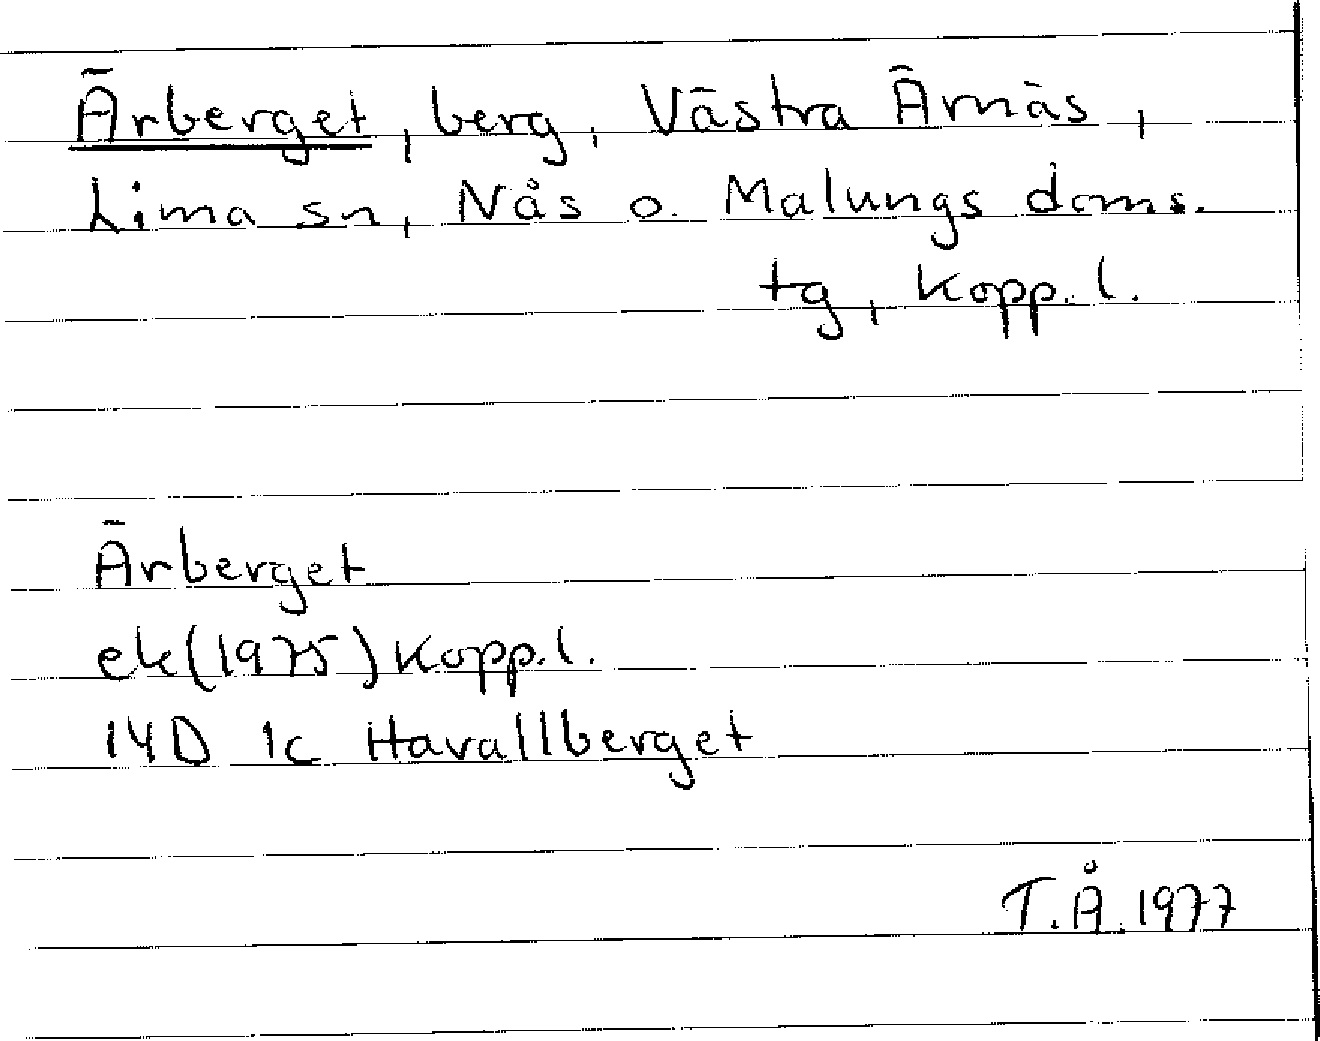 Ärberget, berg, Västra Ärnäs,
Lima sn, Nås o. Malungs doms.
tg, Kopp. l.
Ärberget
ek (1975) Kopp. l.
14D 1c Havallberget
T.Å. 1977